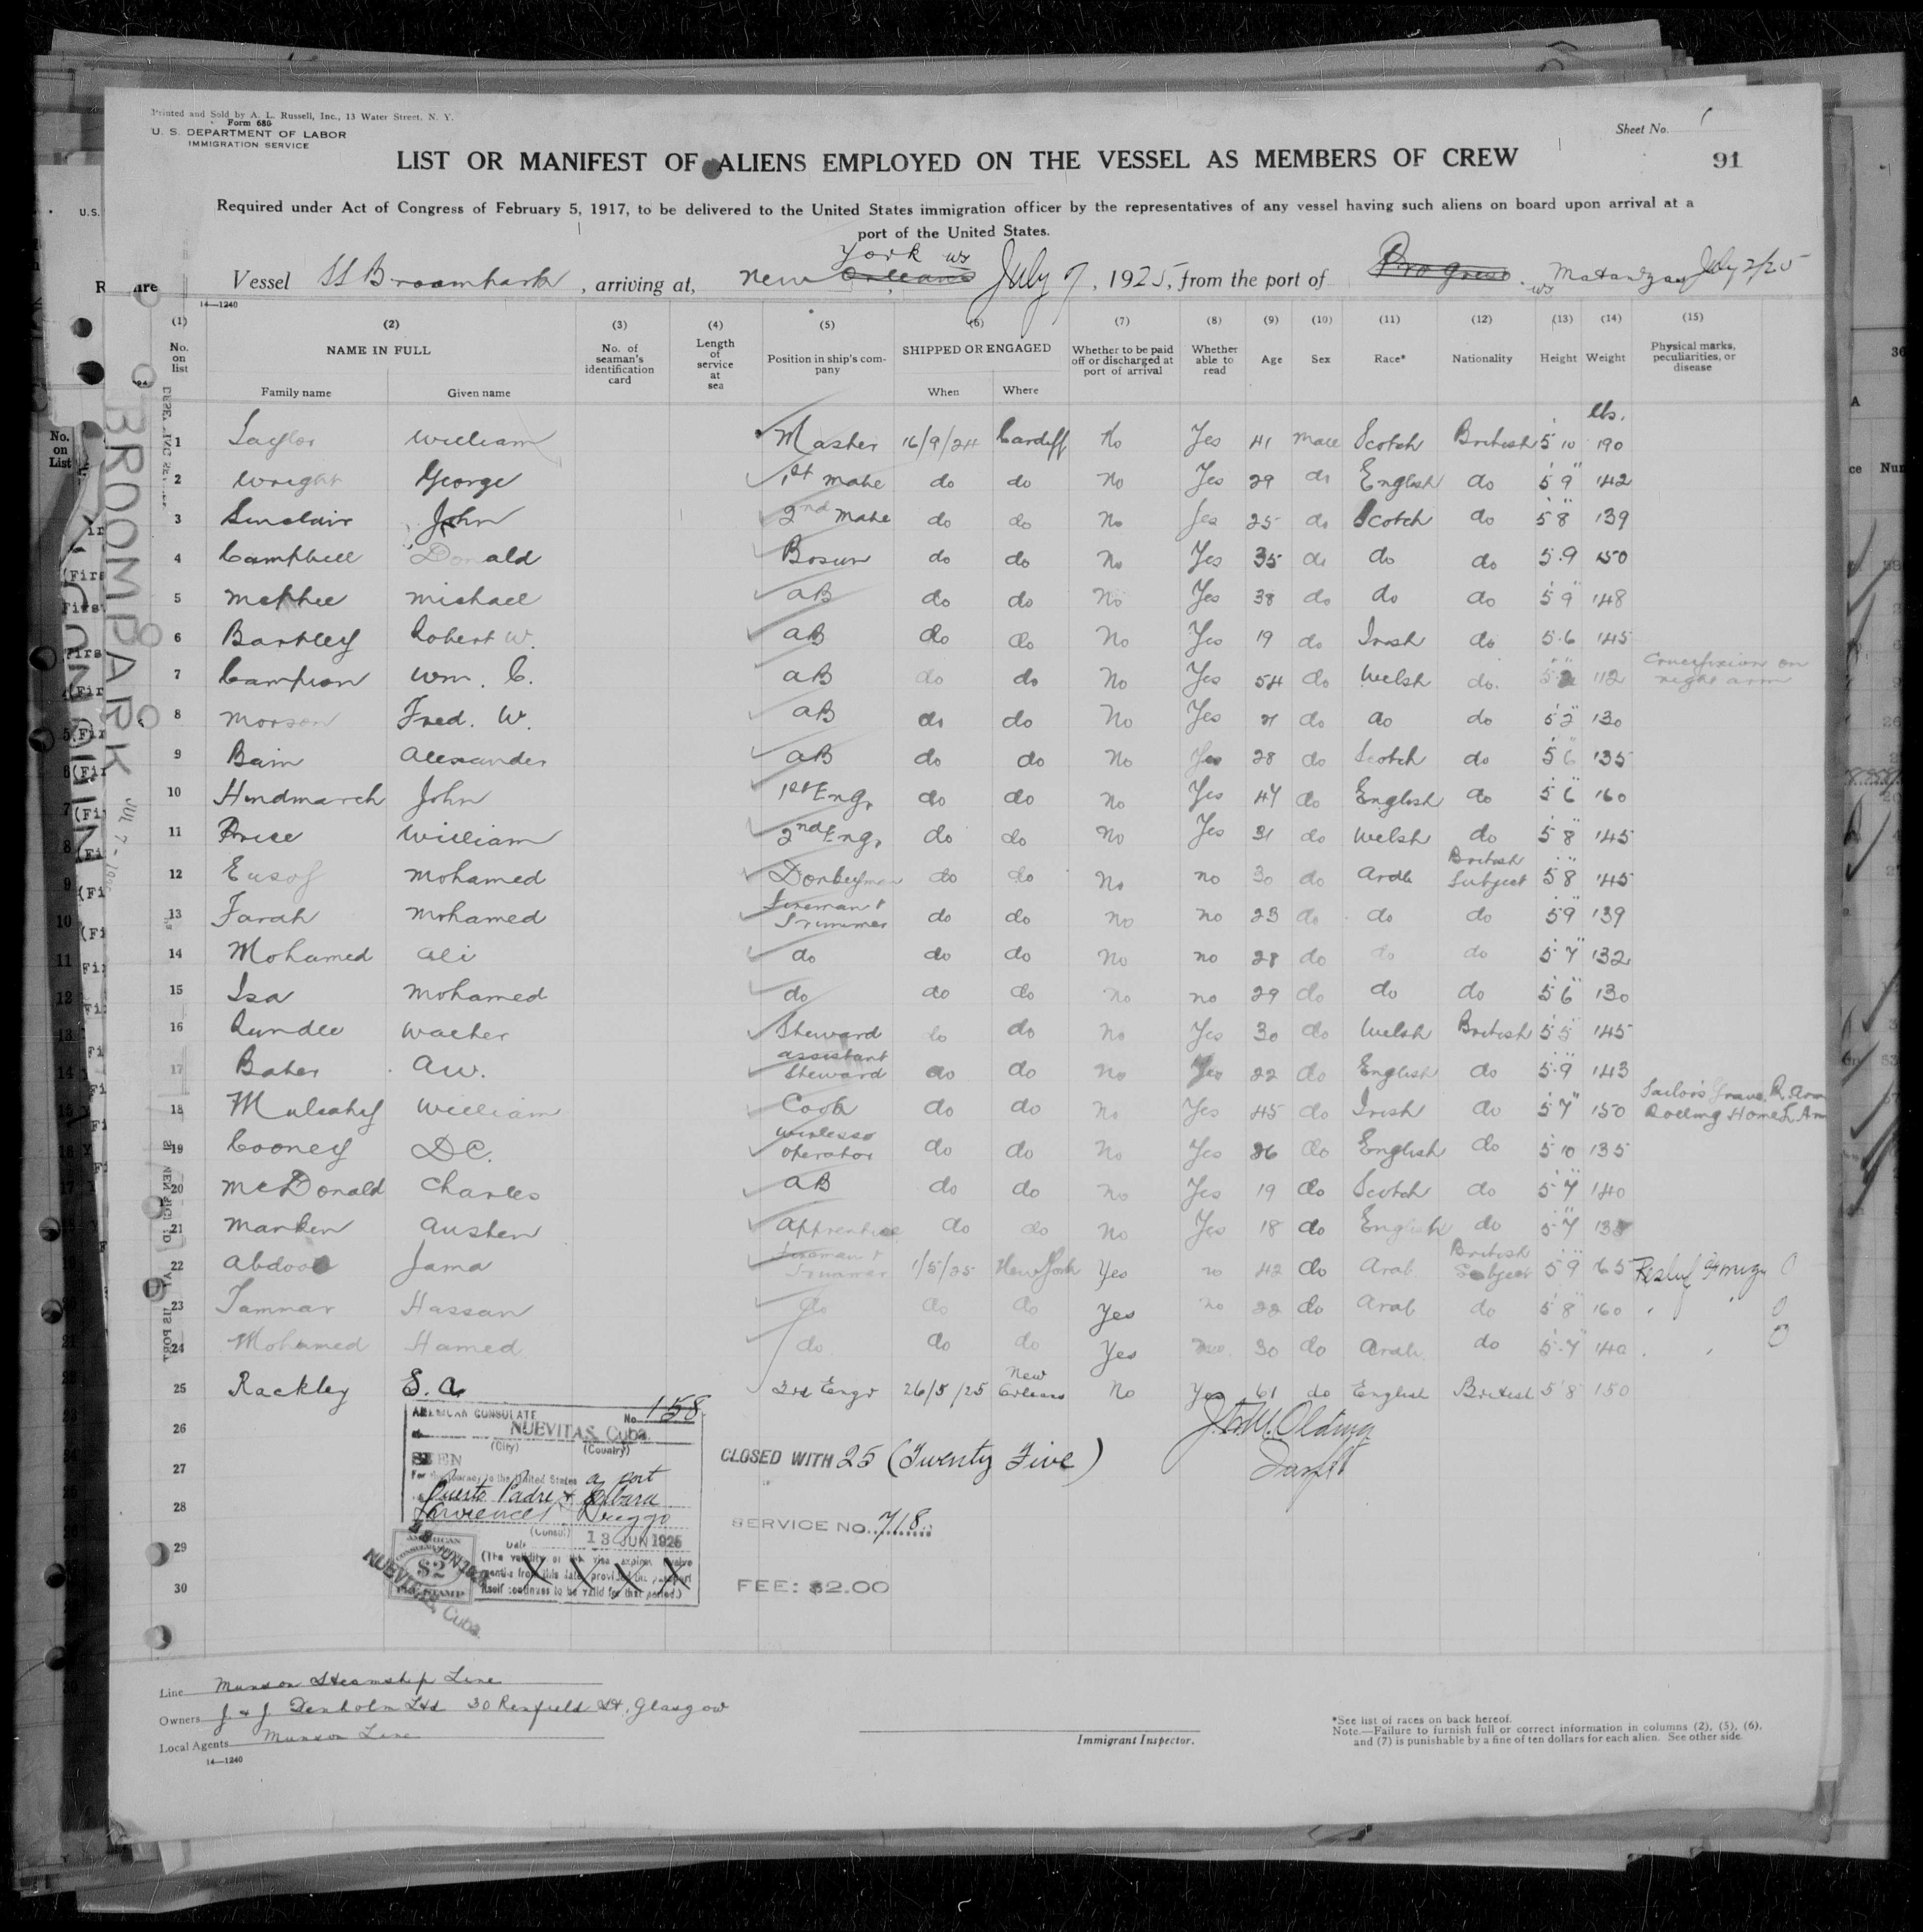 Printed and Sold by A. L. Russell, Inc., 13 Water Street, N. Y.
Form 680
U. S. DEPARTMENT OF LABOR
IMMIGRATION SERVICE
Sheet No. 1
LIST OR MANIFEST OF ALIENS EMPLOYED ON THE VESSEL AS MEMBERS OF CREW
91
Required under Act of Congress of February 5, 1917, to be delivered to the United States immigration officer by the representatives of any vessel having such aliens on board upon arrival at a
port of the United States.
Vessel SS Broompark, arriving at, New Orleans York July 7, 1925, from the port of Progreso. Matanzas July 2/25
14—1240
(1) (2) (3) (4) (5) (6) (7) (8) (9) (10) (11) (12) (13) (14) (15)
No. on list NAME IN FULL No. of seaman's identification card Length of service at sea Position in ship's company SHIPPED OR ENGAGED Whether to be paid off or discharged at port of arrival Whether able to read Age Sex Race* Nationality Height Weight Physical marks, peculiarities, or disease
Family name Given name When Where
lbs.
1 Taylor William Master 16/9/24 Cardiff No Yes 41 Male Scotch British 5 10 190
2 Wright George 1st Mate do do No Yes 29 do English do 5 9 142
3 Sinclair John 2nd Mate do do No Yes 25 do Scotch do 5 8 139
4 Campbell Donald Bosun do do No Yes 35 do do do 5.9 150
5 McPhee Michael AB do do No Yes 38 do do do 5 9 148
6 Bartley Robert W. AB do do No Yes 19 do Irish do 5.6 145
7 Campion Wm. C. AB do do No Yes 54 do Welsh do. 5 2 112 Crucifixion on right arm
8 Morson Fred. W. AB do do No Yes 21 do do do 5 2 130
9 Bain Alexander AB do do No Yes 28 do Scotch do 5 6 135
10 Hindmarch John 1st Eng. do do No Yes 47 do English do 5 6 160
11 Price William 2nd Eng. do do No Yes 31 do Welsh do 5 8 145
12 Eusof Mohamed Donkeyman do do No no 30 do Arab British Subject 5 8 145
13 Farah Mohamed Fireman & Trimmer do do no no 23 do do do 5 9 139
14 Mohamed Ali do do do No no 28 do do do 5 7 132
15 Isa Mohamed do do do No no 29 do do do 5 6 130
16 Rundle Walter Steward do do No Yes 30 do Welsh British 5 5 145
17 Baker A.W. Assistant Steward do do No Yes 22 do English do 5.9 143
18 Mulcahy William Cook do do No Yes 45 do Irish do 5 7 150 Sailor's Grave R. Arm Rolling Home L. Arm
19 Cooney D.C. Wireless Operator do do No Yes 26 do English do 5 10 135
20 McDonald Charles AB do do No Yes 19 do Scotch do 5 7 140
21 Austen Apprentice do do No Yes 18 do English do 5 7
22 Jama Fireman & Trimmer 1/5/25 New York Yes no 42 do Arab British Subject 5 9 165
23 Hassan do do do Yes no 22 do Arab do 5 8 160
24 Mohamed Hamed do do do Yes 30 do Arab do 5.7 140
25 Rackley S. A. 3rd Engr 26/5/25 New Orleans No Yes 61 do English British 5 8 150
26
27
28
29
30
AMERICAN CONSULATE No. 158
NUEVITAS, Cuba.
(City) (Country)
SEEN
For the journey to the United States a port
Puerto Padre &
(Consul)
Date 13 JUN 1925
(The validity of this visa expires twelve
months from this date, provided the passport
itself continues to be valid for that period.)
AMERICAN
$2
FEE STAMP
NUEVITAS, Cuba.
CLOSED WITH 25 (Twenty Five)
SERVICE NO. 718
FEE: $2.00
BROOMPARK
JUL 7-
Line Munson Steamship Line
Owners J. & J. Denholm Ltd 30 Renfield St. Glasgow
Local Agents Munson Line
14—1240
Immigrant Inspector.
*See list of races on back hereof.
Note.—Failure to furnish full or correct information in columns (2), (5), (6),
and (7) is punishable by a fine of ten dollars for each alien. See other side.